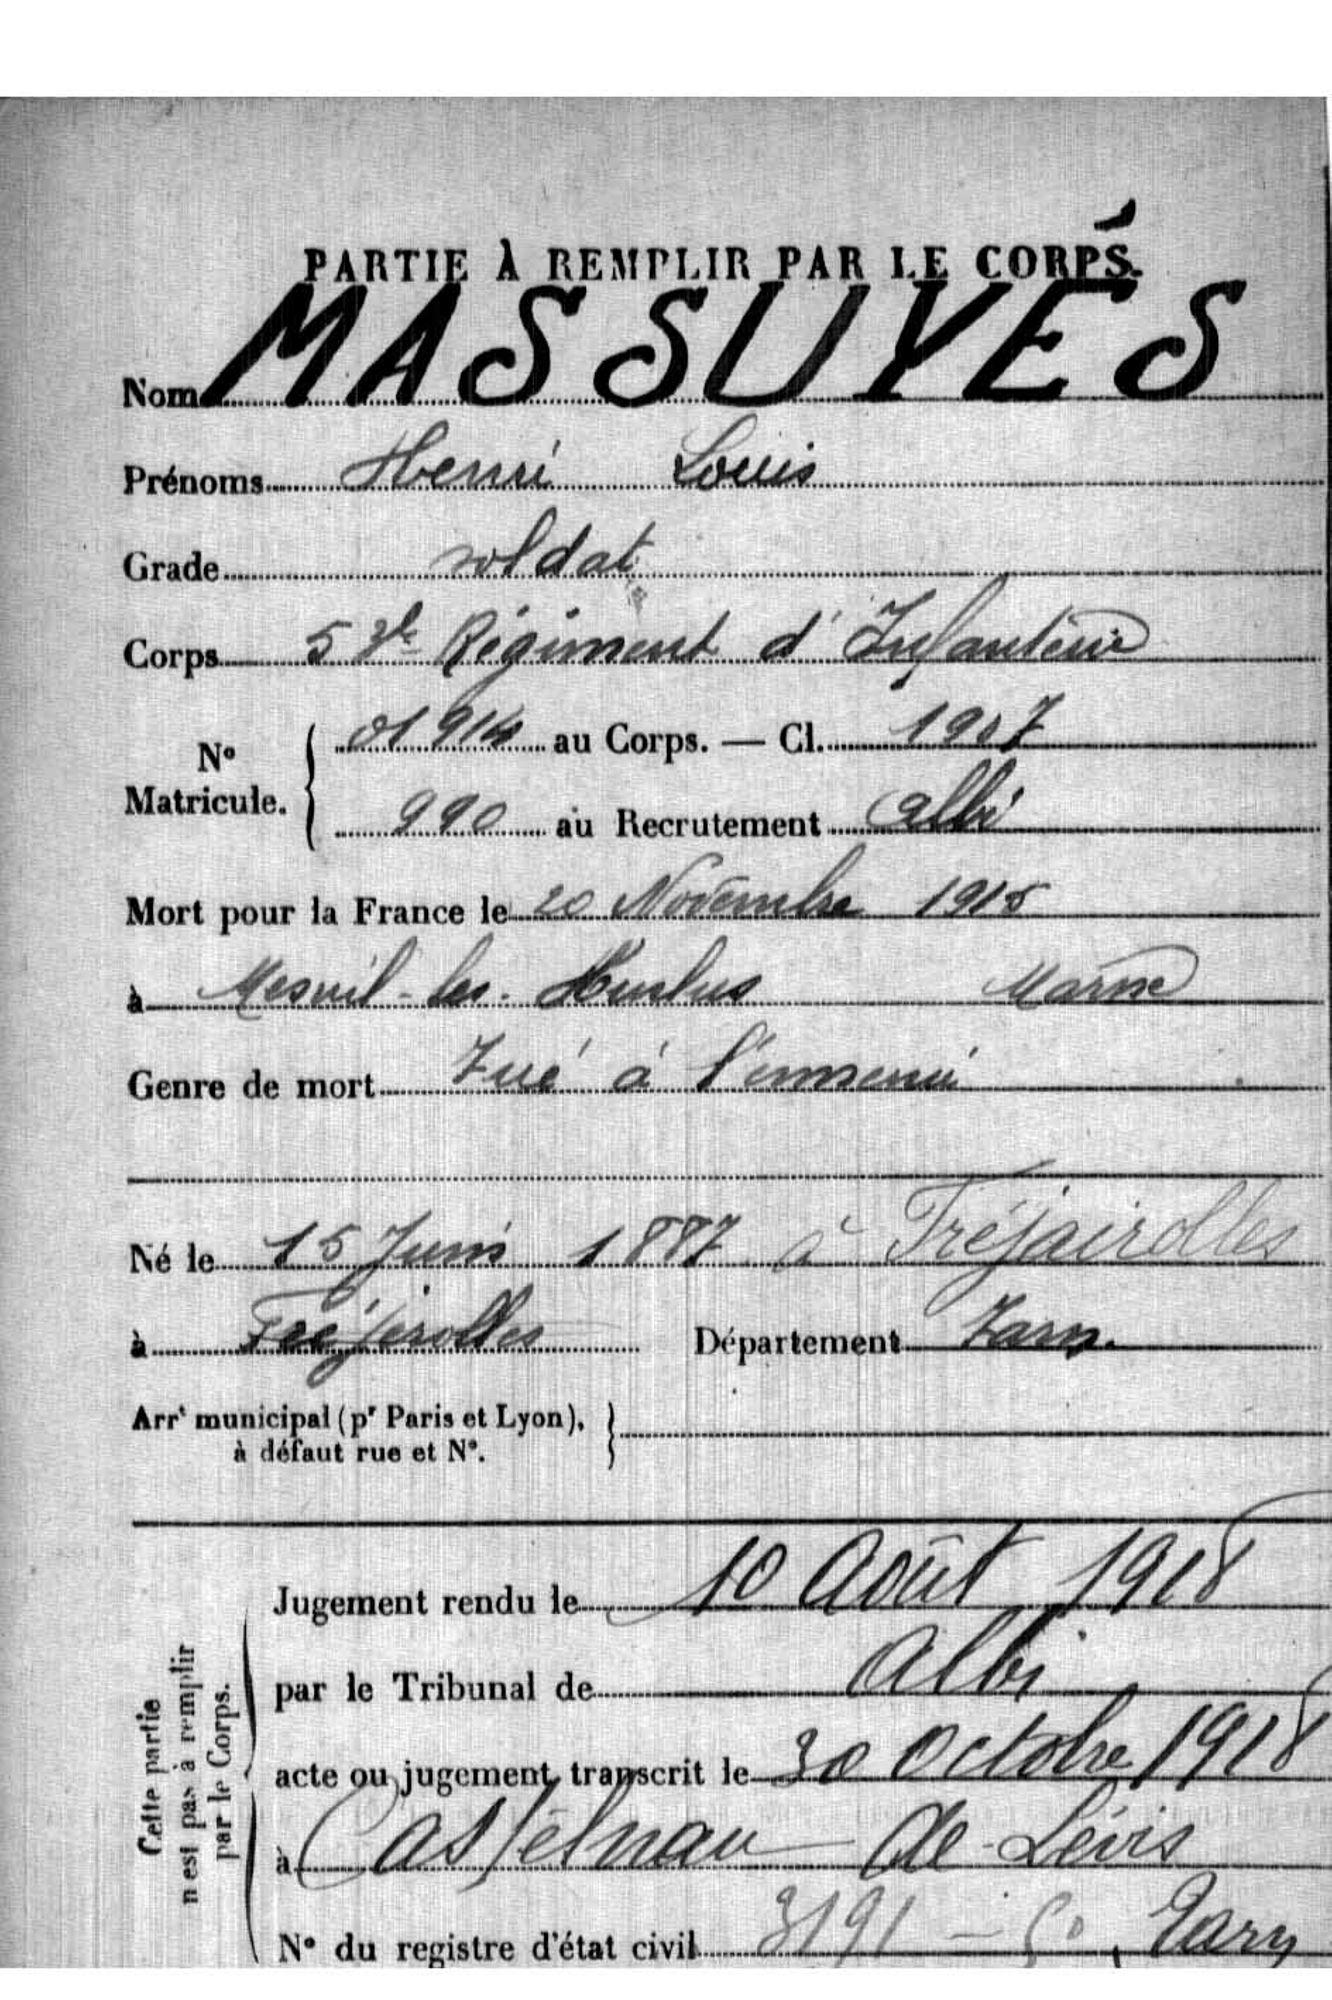 PARTIE À REMPLIR PAR LE CORPS.
Nom MASSUYÉS
Prénoms Henri Louis
Grade soldat
Corps 53e Régiment d'Infanterie
No Matricule. 01914 au Corps. — Cl. 1907
990 au Recrutement Albi
Mort pour la France le 20 Novembre 1915
à Mesnil-les-Hurlus Marne
Genre de mort Tué à l'ennemi
Né le 15 Juin 1887 à Fréjairolles
à Fréjerolles Département Tarn.
Arrt municipal (pr Paris et Lyon),
à défaut rue et No.
Cette partie
n'est pas à remplir
par le Corps.
Jugement rendu le 10 Août 1918
par le Tribunal de Albi
acte ou jugement transcrit le 30 Octobre 1918
à Castelnau de Lévis
No du registre d'état civil Tarn